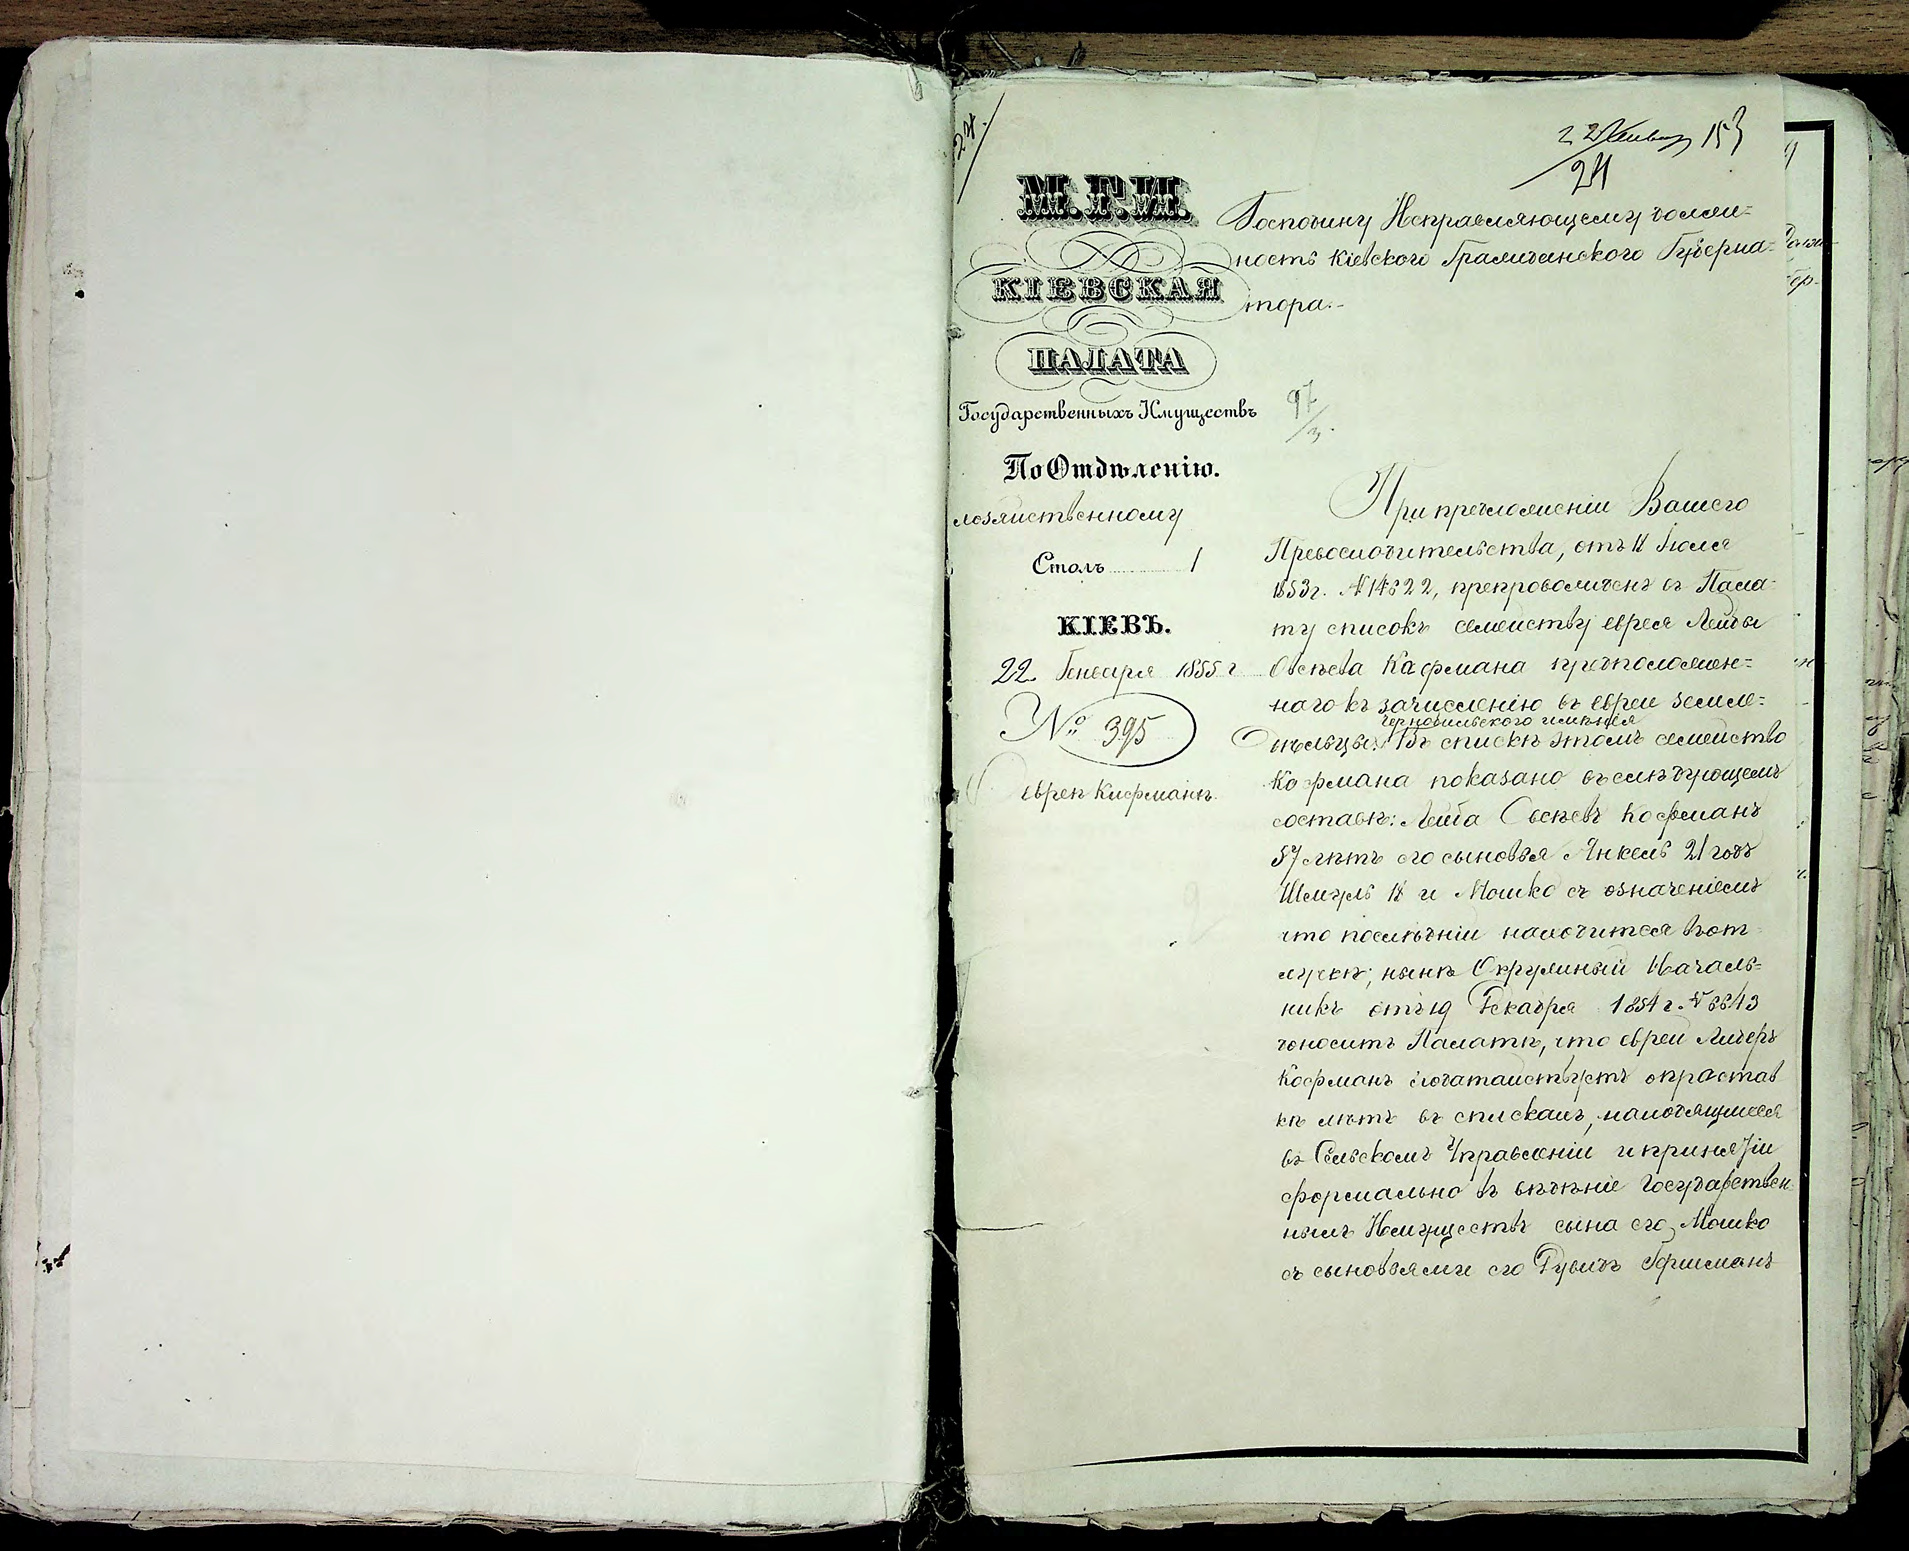 24.
22 Январ 153
24
М.Г.И.
КІЕВСКАЯ
ПАЛАТА
Государственныхъ Имуществъ
По Отдѣленію.
хозяйственному
Столъ 1
КІЕВЪ.
22 Генваря 1855 г
№ 395
О евреѣ Кафманѣ.
Господину Исправляющему долж=
ность Кіевского Гражданского Губерна=
тора.
97
3
При предложеніи Вашего
Превосходительства, отъ 11 Іюля
1853 г. № 14622, препровожденъ въ Пала=
ту списокъ семейству еврея Лейбы
Овсѣева Кофмана предположен=
наго къ зачисленію въ евреи земле=
Чернобильского имѣнія
дѣльцы. Въ спискѣ этомъ семейство
Кофмана показано въ слѣдующемъ
составѣ: Лейба Овсѣевъ Кофманъ
57 лѣтъ его сыновья Янкель 21 годъ
Шмуль 18 и Мошко съ означеніемъ
что послѣдній находится въ от
лучкѣ; нынѣ Окружный Началь=
никъ отъ 19 Декабря 1854 г. № 6643
доноситъ Палатѣ, что еврей Лейбѣръ
Кофманъ ходатайствуетъ о простав
кѣ лѣтъ въ спискахъ, находящихся
въ Сельскомъ Управленіи и принятіи
формально въ вѣдѣніе Государствен
ныхъ Имуществъ сына его Мошко
съ сыновьями его Рувинъ Гершманъ